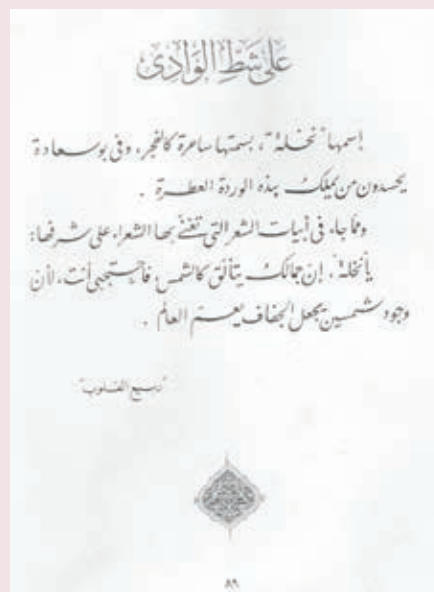 على شط الوادى
إسمها "نخلة"، بسمتها ساحرة كالفجر، وفى بوسعادة
يحسدون من يملك بهذه الوردة العطرة .
ومما جاء فى أبيات الشعر التى تغنى بها الشعراء على شرفها:
يا نخلة، إن جمالك يتألق كالشمس فاحتجبى أنت، لأن
وجود شمسين يجعل الجفاف يعم العالم .
"ربيع القلوب"
٨٩